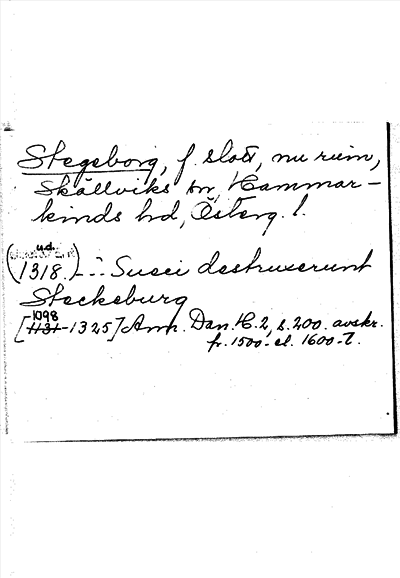 Stegeborg, f. slott, nu ruin,
Skällviks sn, Hammar-
kinds hd, Österg. l.
u.d.
(1318.) - : Sueci destruxerunt
Steckeburg
1098
[1131-1325] Ann. Dan. H. 2, s. 200. avskr.
fr. 1500- el. 1600-t.